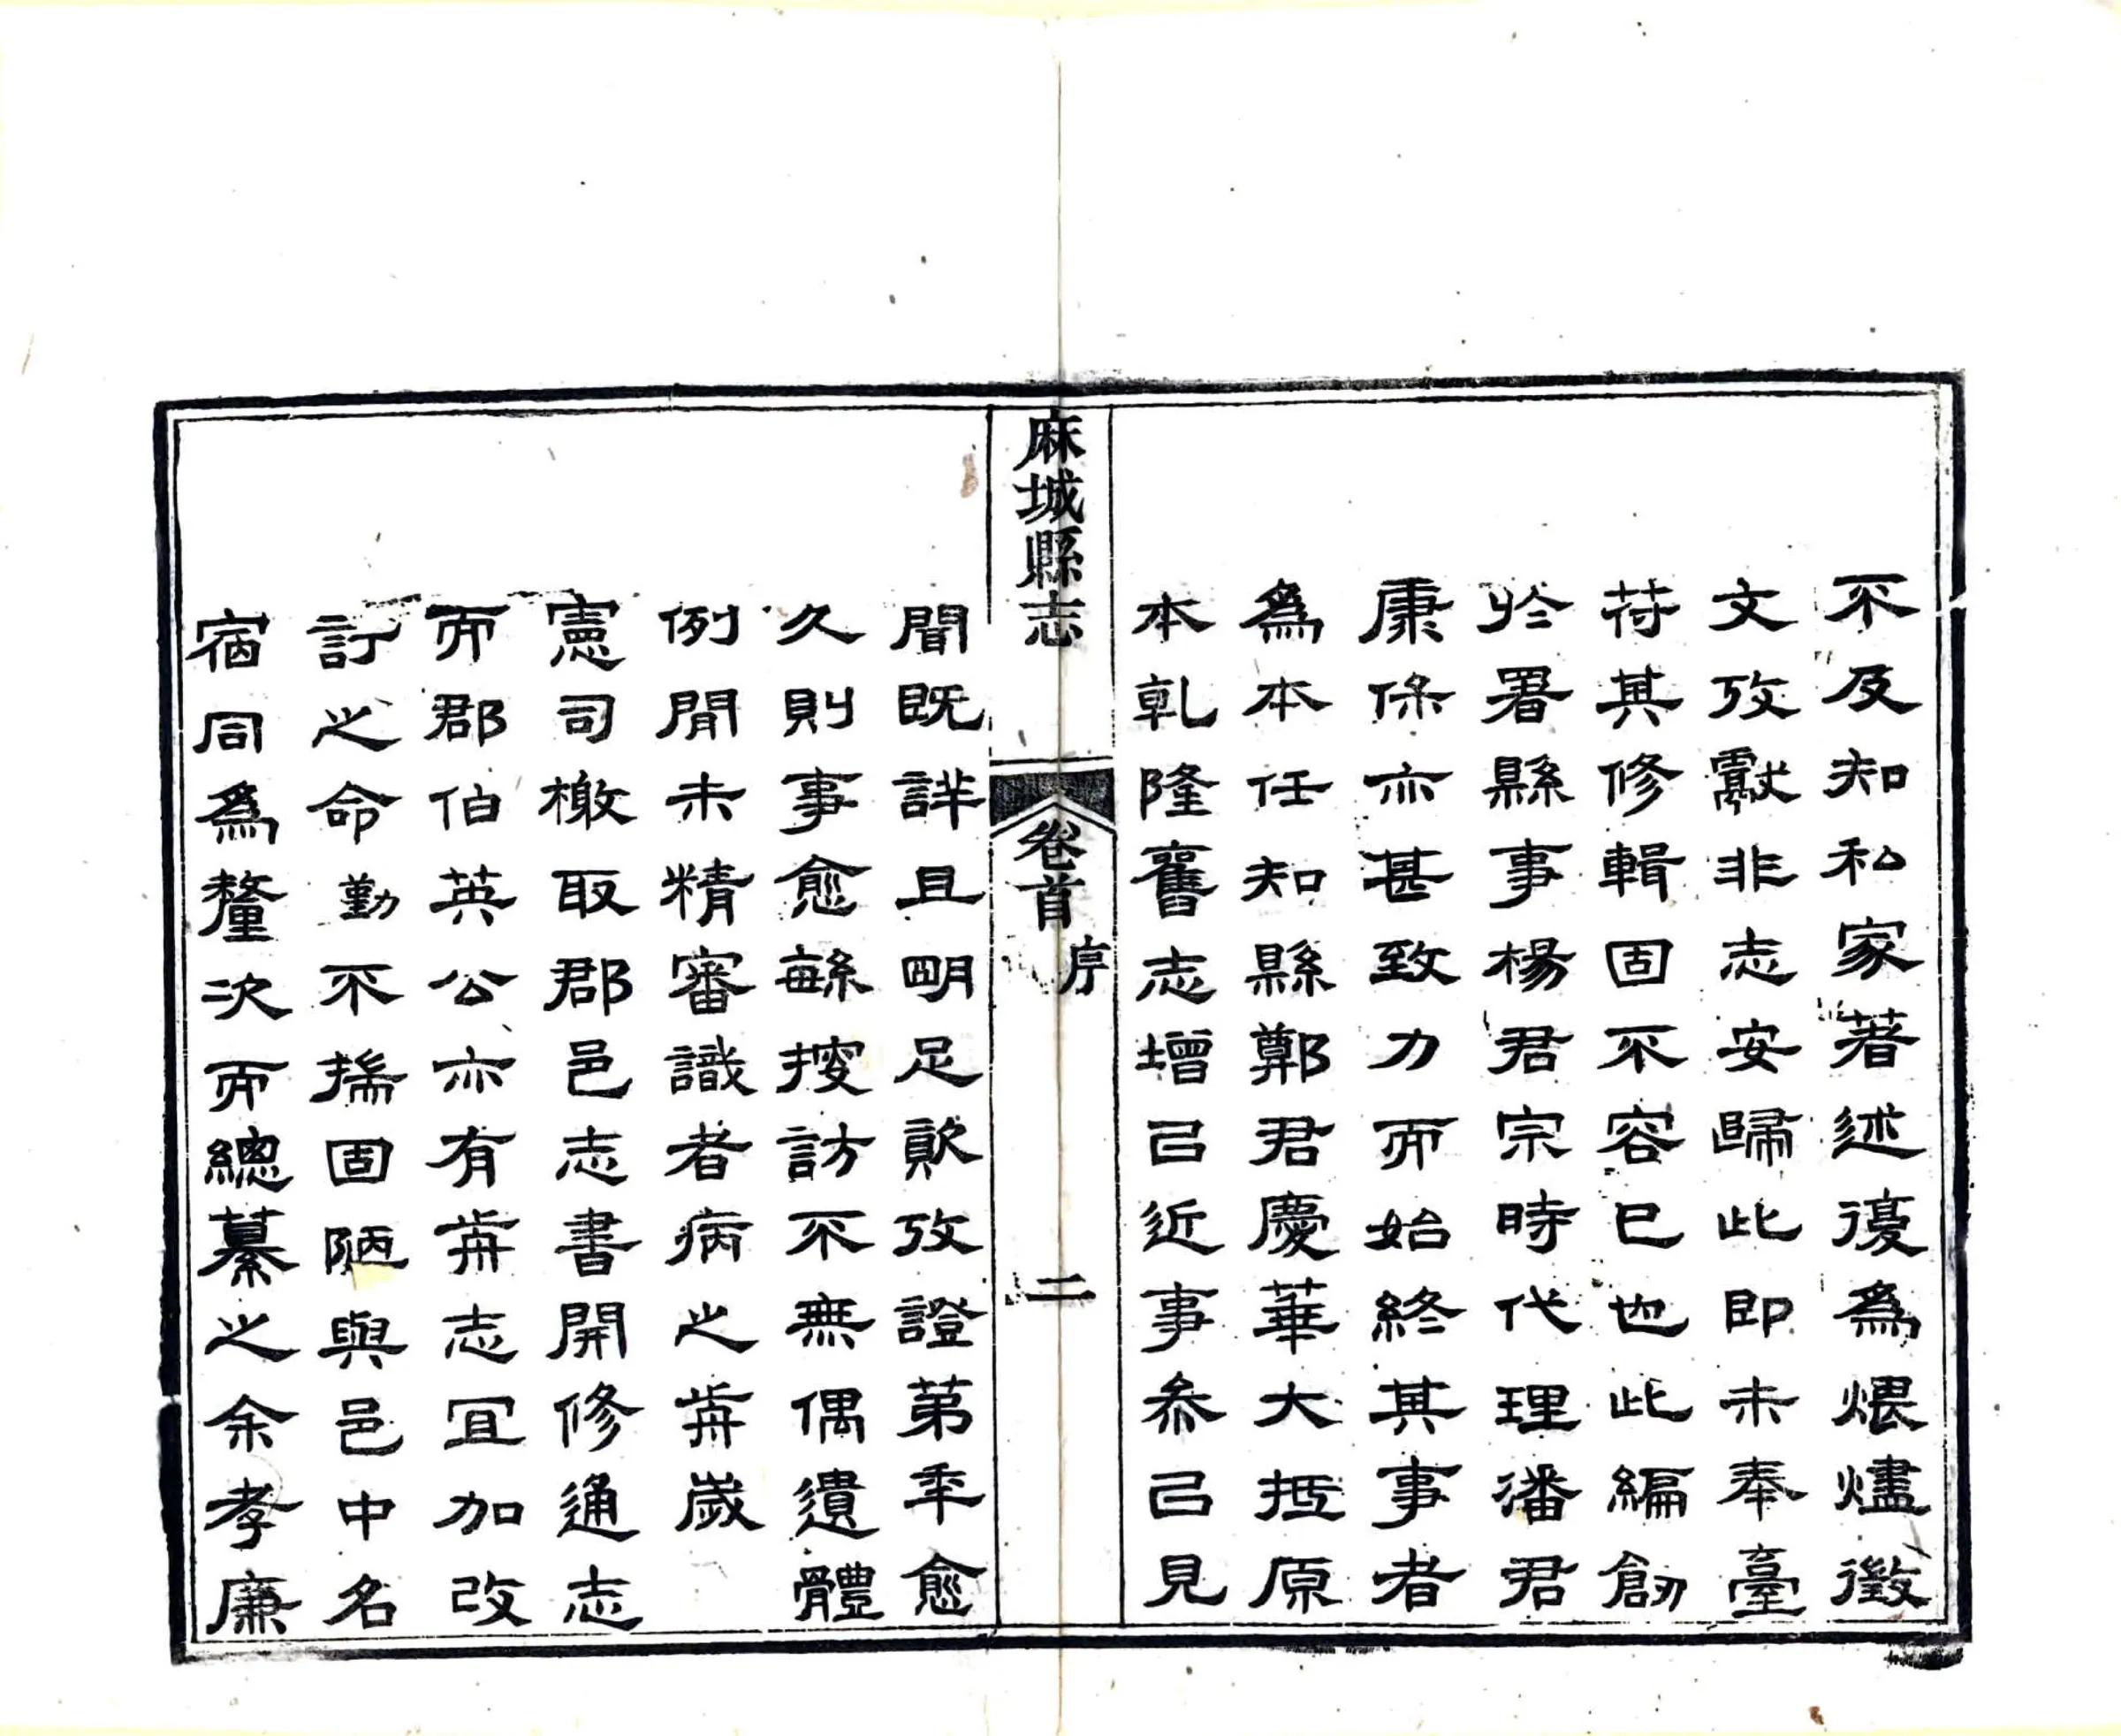 不及知私家著述復爲煨燼徵
文攷獻非志安歸此即未奉臺
符其修輯固不容已也此編創
於署縣事楊君宗時代理潘君
康保亦甚致力而始終其事者
爲本任知縣鄭君慶華大抵原
本乾隆舊志增㠯近事叅㠯見
麻城縣志
卷首
序
二
聞既詳且明足歟攷證苐年愈
久則事愈緐搜訪不無偶遺體
例閒未精審識者病之歬歲
憲司檄取郡邑志書開修通志
而郡伯英公亦有歬志宜加改
訂之命勤不揣固陋與邑中名
宿同爲釐次而總纂之余孝廉